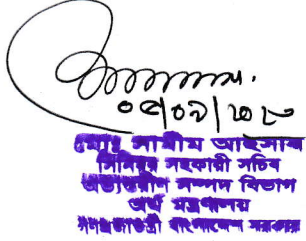 ০৫/০১/২০২০
মোঃ সামীম আহসান
সিনিয়র সহকারী সচিব
অভ্যন্তরীণ সম্পদ বিভাগ
অর্থ মন্ত্রণালয়
গণপ্রজাতন্ত্রী বাংলাদেশ সরকার